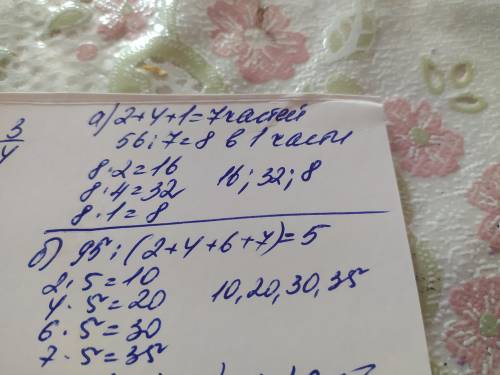 3
4
а) 2+4+1=7 частей
56:7=8 в 1 части
8·2=16
8·4=32 16; 32; 8
8·1=8
б) 95:(2+4+6+7)=5
2·5=10
4·5=20 10, 20, 30, 35
6·5=30
7·5=35